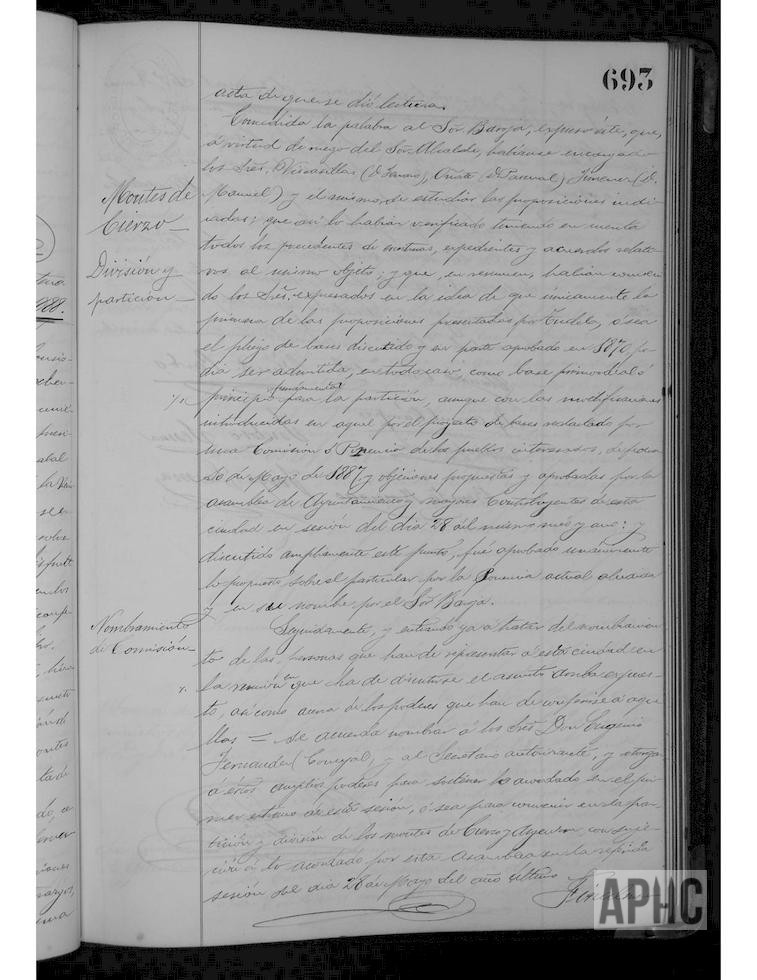 693
acta de que se dió lectura.
Concedida la palabra al Sor. Barga, expuso éste, que,
á virtud de ruego del Sor. Alcalde, habíanse encargado
los Sres. Viscasillas (D. Genaro), Oñate (D. Pascual) Jimenez (D.
Manuel) y el mismo, de estudiar las proposiciones indi-
cadas; que así lo habian verificado teniendo en cuenta
todos los precedentes de escrituras, expedientes y acuerdos relati-
vos al mismo objeto; y que, en resumen, habian conveni-
do los Sres. expresados en la idea de que únicamente la
primera de las proposiciones presentadas por Tudela, ó sea
el pliego de bases discutido y en parte aprobado en 1870, po-
dia ser admitida, en todo caso, como base primordial ó
principio fundamental para la partición, aunque con las modificaciones
introducidas en aquel por el proyecto de bases redactado por
una Comisión ó Ponencia de los pueblos interesados, de fecha
de Mayo de 1887 y objeciones propuestas y aprobadas por la
asamblea de Ayuntamiento y mayores Contribuyentes de esta
ciudad en sesión del dia 28 del mismo mes y año: y
discutido ampliamente este punto, fué aprobado unánimemente
lo propuesto sobre el particular por la Ponencia actual
y en su nombre por el Sor. Barga.
Montes de
Cierzo
División y
partición
Nombramiento
de Comisión
Seguidamente, y entrando ya á tratar del nombramien-
to de las personas que han de representar á esta ciudad en
la reunión en que ha de discutirse el asunto arriba expues-
to, así como acerca de los poderes que han de conferirse á aque-
llas = Se acuerda nombrar á los Sres. Don Eugenio
Fernandez, Concejal, y al Secretario autorizante, y otorgar
á éstos amplios poderes para sostener lo acordado en el pri-
mer extremo de esta sesión, ó sea para convenir en la par-
tición y división de los montes de Cierzo y Argenzon, con suje-
ción á lo acordado por esta Asamblea en la referida
sesión del dia 28 de Mayo del año último
APHC